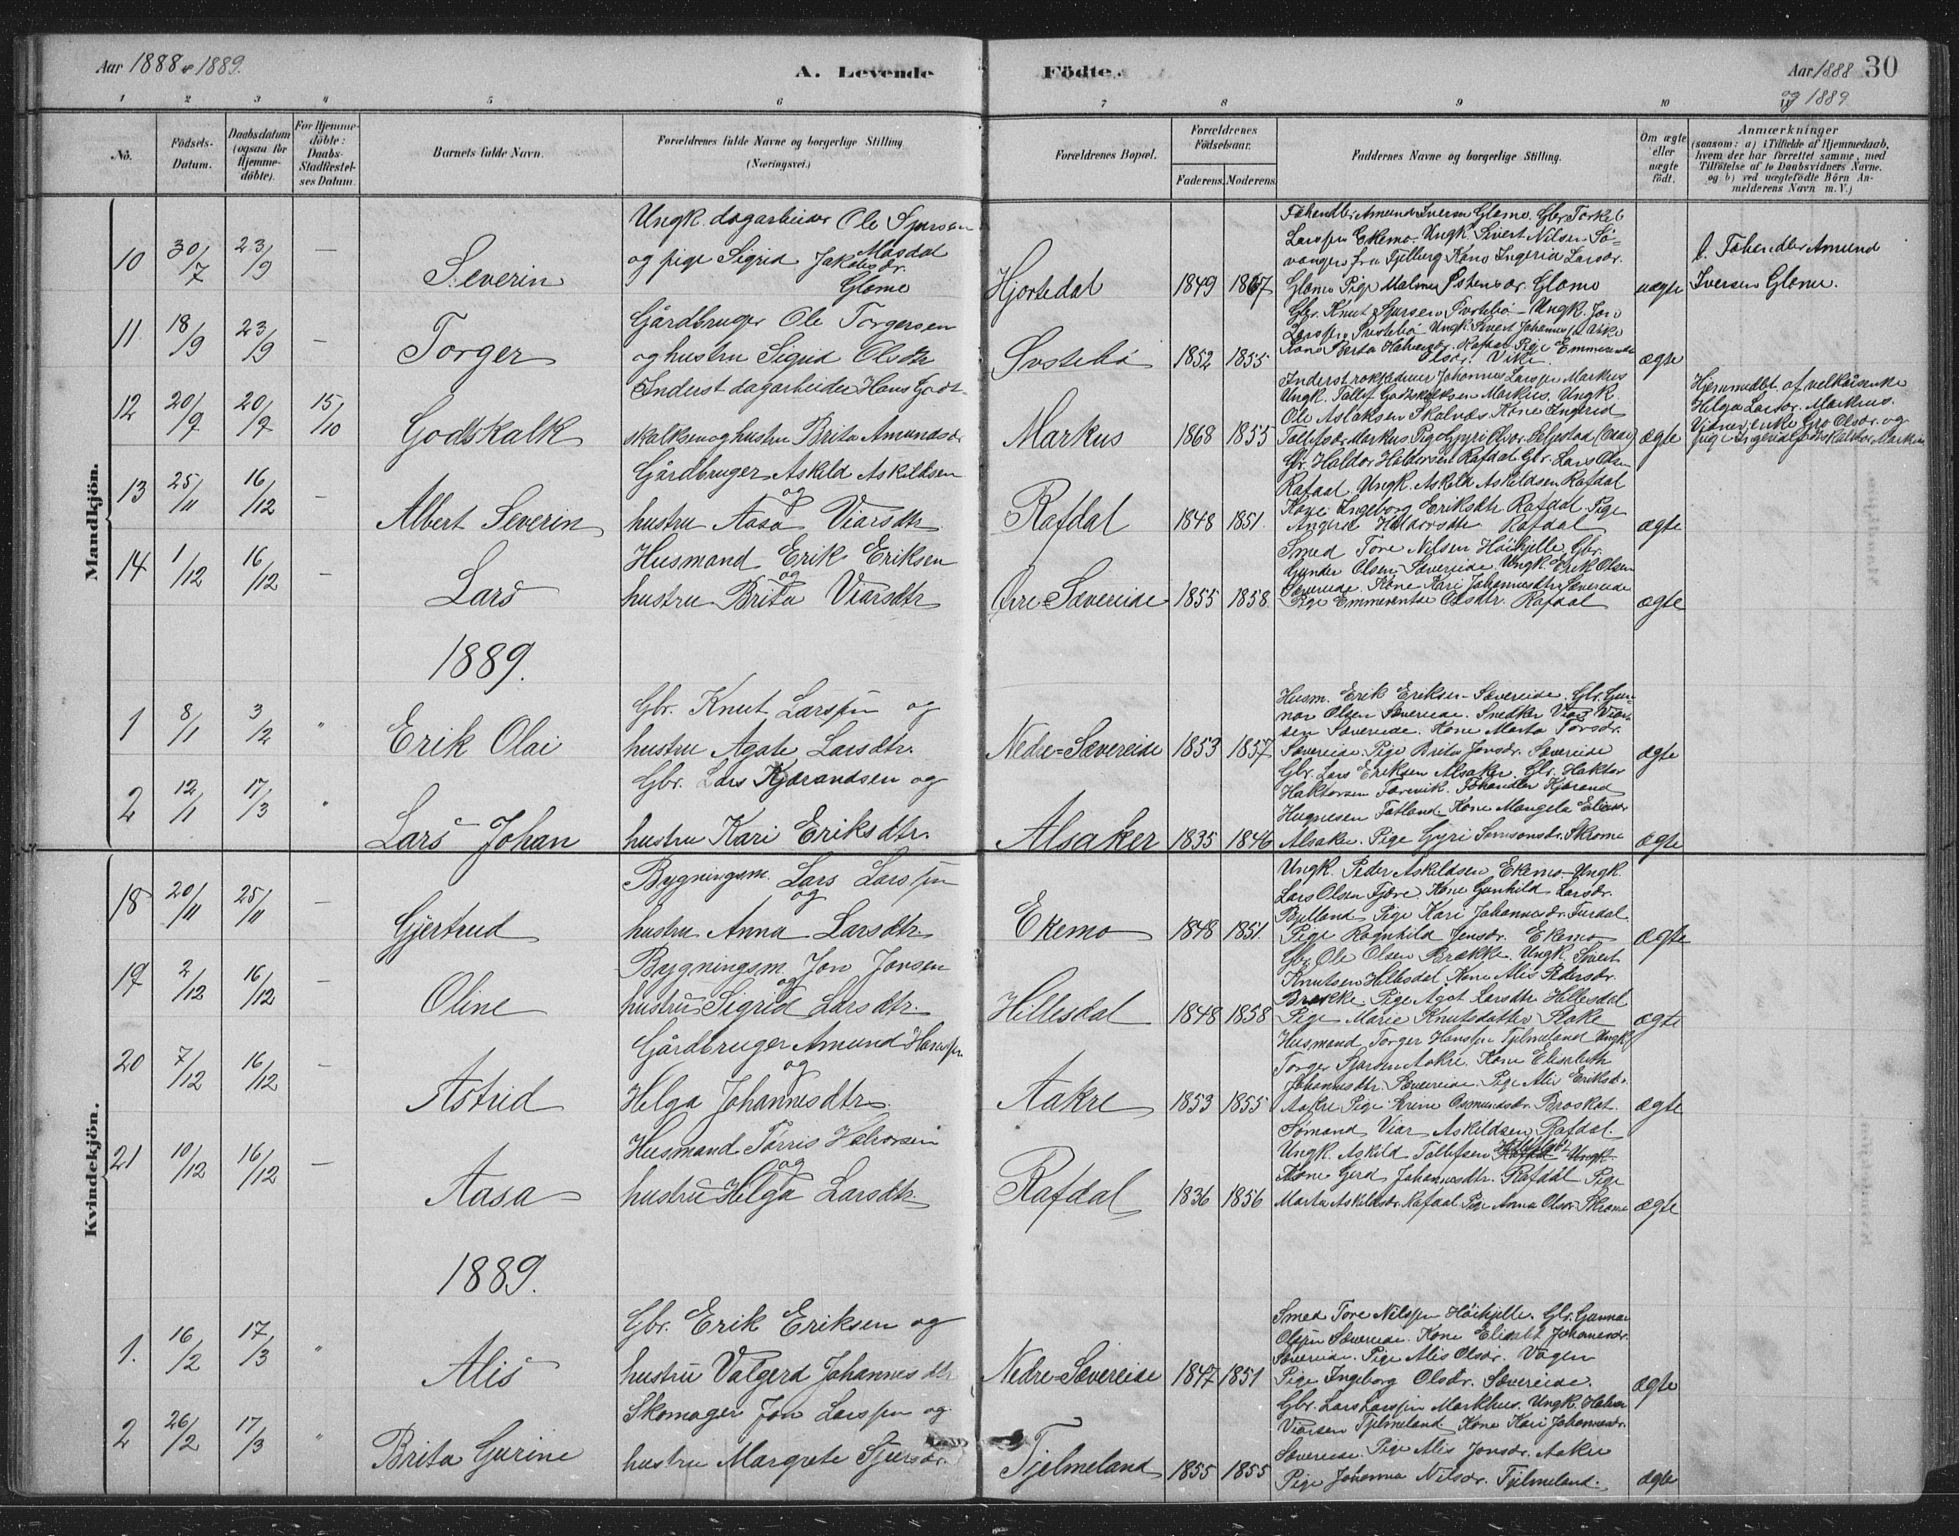 Aar 1888 & 1889.
A. Levende Födte.
Aar 1888 30
og 1889
1 2 3 4 5 6 7 8 9 10
No.
Födsels-Datum.
Daabsdatum (ogsaa for Hjemme-döbte).
For Hjemme-döbte: Daabs-Stadfæstel-ses Datum.
Barnets fulde Navn.
Forældrenes fulde Navne og borgerlige Stilling (Næringsvei.)
Forældrenes Bopæl.
Forældrenes Födselsaar.
Faderens. Moderens.
Faddernes Navne og borgerlige Stilling.
Om ægte eller uægte födt.
Anmærkninger
(saasom: a) i Tilfælde af Hjemmedaab, hvem der har forrettet samme, med Tilföielse af to Daabsvidners Navne. og b) ved uægtefödte Börn Anmelderens Navn m. V.)
Mandkjön.
10 30/7 23/9 — Severin
Ungk. dagarbeider Ole
og pige Sigrid Jakobsdr. Glomo
Hjortedal 1849 1867
Larssen Ekemo. Ungk. Sivert Nilsen
Kone Ingerid Larsdr.
Glomo Pige Glomo
uægte
Amund
Iversen Glomo.
11 18/9 23/9 — Torger
Gårdbruger Ole Torgersen
og hustru Sigrid Olsdtr
Svstebö 1852 1855
Gbr. Knut Sjursen Svstebö – Ungk. Jon
Larssen Svstebö Ungk. Sivert Johannes
Kone Berta Rafdal Pige Emmerentse
Olsdr. Vike
ægte
12 20/9 20/9 15/10 Godskalk
Inderst dagarbeider Hans Godskalksen og hustru Brita Amundsdr
Markus 1868 1853
Inderst Johannes Larssen Markus
Ungk. Tollef Godskalksen Markus. Ungk.
Ole Aslaksen Kone Ingerid
Tollefsdr. Markus Pige
ægte
Hjemmedöbt af
Helga Larsdr. Markus.
Vidner, enke Gro Olsdr. og
pige Ingerid Godskalksdr. Markus
13 25/11 16/12 — Albert Severin
Gårdbruger Askild Askildsen
og
hustru Aasa Viarsdtr
Rafdal 1848 1851.
Gbr. Haldor Haldorsen Rafdal Gbr. Lars Olsen
Rafdal. Ungk. Askild Askildsen Rafdal
Kone Ingeborg Eriksdtr Rafdal Pige
Angerid Haldorsdtr Rafdal
ægte
14 1/12 16/12 — Lars
Husmand Erik Eriksen
og
hustru Brita Viarsdtr
Övre Sævereide 1855 1858
Smed Tore Nilsen Höikjelle. Gbr.
Gunder Olsen Sævereide Ungk. Erik Olsen
Sævereide. Kone Kari Johannesdtr Sævereide
Pige Emmerentse Olsdtr. Rafdal
ægte
1889.
1 8/1 3/2 " Erik Olai
Gbr. Knut Larssen og
hustru Agate Larsdtr.
Nedre-Sævereide 1853 1857
Husm. Erik Eriksen – Sævereide. Gbr. Gunnar Olsen Sævereide. Snedker Viar Viarsen Sævereide. Kone Marta Torsdr.
Sævereide. Pige Brita Jonsdr. Sævereide
ægte
2 12/1 17/3 " Lars Johan
Gbr. Lars Kjærandsen og
hustru Kari Eriksdtr.
Alsaker 1835 1846
Gbr. Lars Eriksen Alsaker. Gbr. Haktor
Haktorsen Tørevik. Föhandler Kjærand
Hugnesen Fatland. Kone Mangela Eliasdr
Alsaker. Pige Gyri Samsonsdr. Skromo
ægte
Kvindekjön.
18 20/11 25/11 — Gjertrud
Bygningsm. Lars Larssen
og
hustru Anna Larsdtr
Ekemo 1848 1851.
Ungk. Peder Askildsen Ekemo – Ungk.
Lars Olsen Fjære Kone Gunhild Larsdr.
Bjelland Pige Kari Johannesdr.
Pige Ragnhild Jensdr. Ekemo
ægte
19 2/12 16/12 — Oline
Bygningsm. Jon Jonsen
og
hustru Sigrid Larsdtr.
Hillesdal 1848 1858
Gbr. Ole Olsen Brække. Ungk. Sivert
Knutsen Hillesdal Kone Alis Pedersdr.
Brække. Pige Agot Larsdtr Hillesdal
Pige Marie Knutsdatter Floke
ægte
20 7/12 16/12 — Astrid
Gårdbruger Amund Hanssen
og
Helga Johannesdtr.
Aakre 1853 1855
Husmand Torger Hanssen Tjelmeland Ungk
Torger Sjursen Aakre. Kone Elisabeth
Johannesdtr. Sævereide. Pige Alis Eriksdr.
Aakre Pige Osmundsdr. Broskat.
ægte
21 10/12 16/12 — Aasa
Husmand Tørris Halvorsen
og
hustru Helga Larsdtr.
Rafdal 1836 1856
Sømand Viar Askildsen Rafdal.
Ungk. Askild Tollefsen Ungk.
Kone Gerd Johannesdtr. Rafdal Pige
Marta Askildsdr. Rafdal Pige Anna Olsdr Skromo
ægte
1889.
1. 16/2 17/3 " Alis
Gbr. Erik Eriksen og
hustru Valgerd Johannesdtr
Nedre-Sævereide 1847 1851
Smed Tore Nilssen Höikjelle. Gbr. Gunnar
Olssen Sævereide. Kone Elisabt. Johannesdr.
Sævereide. Pige Alis Olsdr. Vågen
Pige Ingeborg Olsdr. Sævereide.
ægte
2 26/2 17/3 " Brita Gurine
Skomager Jon Larssen og
hustru Margrete Sjursdr.
Tjelmeland 1855 1855
Gbr. Lars Larssen Markhus. Ungk. Halvor
Viarsen Tjelmeland Kone Kari Johannesdr.
Sævereide. Pige Alis Jonsdr. Aakre
Pige Johanna Nilsdr. Tjelmeland.
ægte